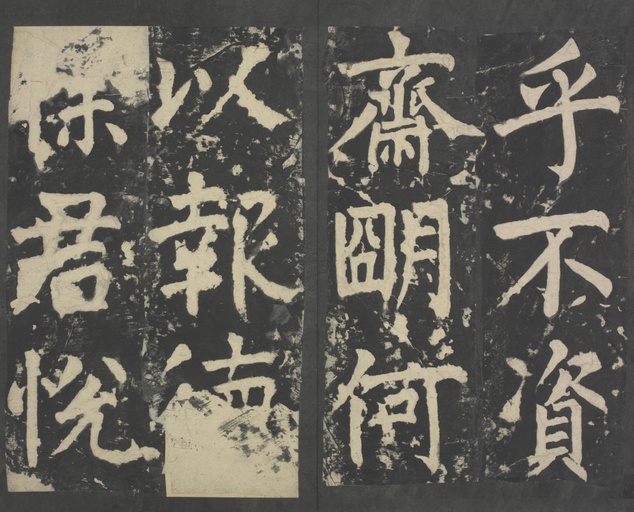 乎不資
齋朙何
以報德
保君悅